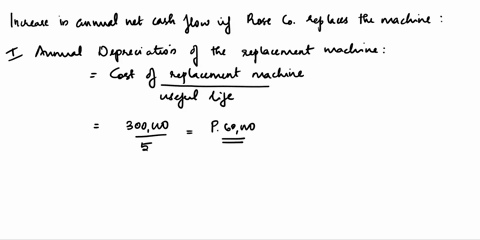 Increase in annual net cash flow if Rose Co. replaces the machine :
I Annual Depreciation of the replacement machine :
= Cost of replacement machine
useful life
= 300,000 = P. 60,000
5